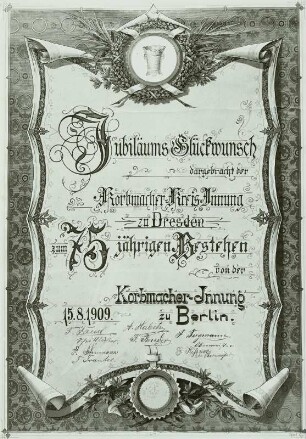 Jubiläums Glückwunsch
dargebracht der
Korbmacher-Kreis-Innung
zu Dresden
zum 75 jährigen Bestehen
von der
Korbmacher-Innung
15.8.1909. zu Berlin.